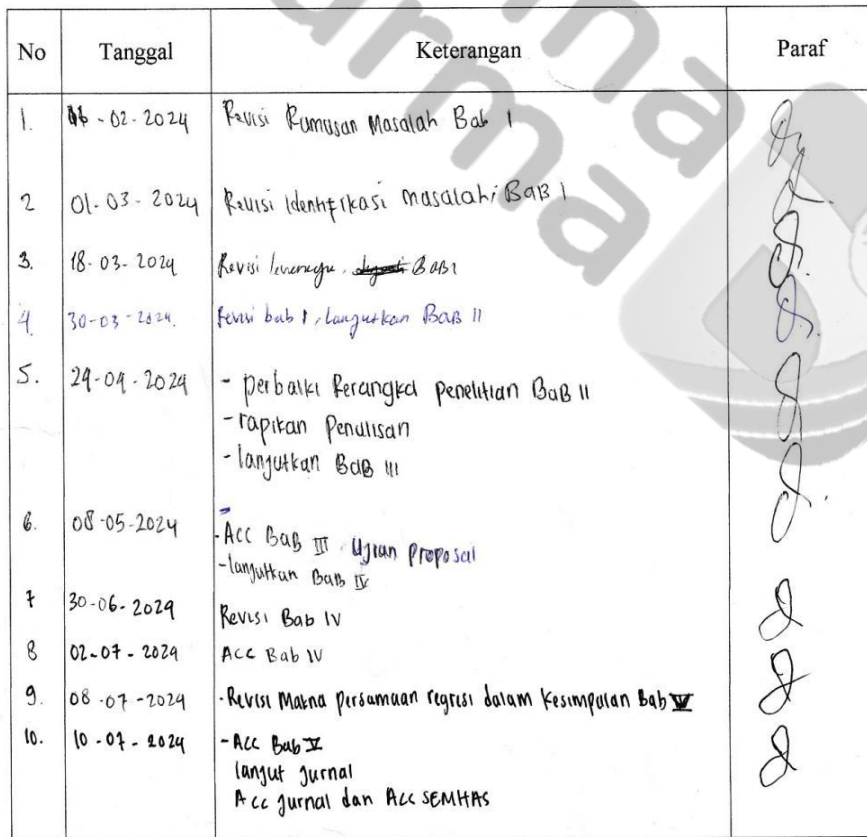 No Tanggal Keterangan Paraf
1. 16 - 02 - 2024 Revisi Rumusan Masalah Bab 1
2 01 - 03 - 2024 Revisi Identifikasi masalah BAB 1
3. 18 - 03 - 2024 Revisi BAB 1
4. 30 - 03 - 2024. Revisi bab 1, Langutkan BAB II
5. 29 - 04 - 2024 - perbaiki Kerangka penelitian BAB II
- rapikan Penulisan
- lanjutkan BAB III
6. 08 - 05 - 2024 - Acc BAB III Ujian Proposal
- lanjutkan BAB IV
7 30 - 06 - 2024 Revisi Bab IV
8 02 - 07 - 2024 ACC Bab IV
9. 08 - 07 - 2024 - Revisi Makna persamaan regresi dalam kesimpulan Bab V
10. 10 - 07 - 2024 - Acc Bab V
langut Jurnal
Acc Jurnal dan Acc SEMHAS